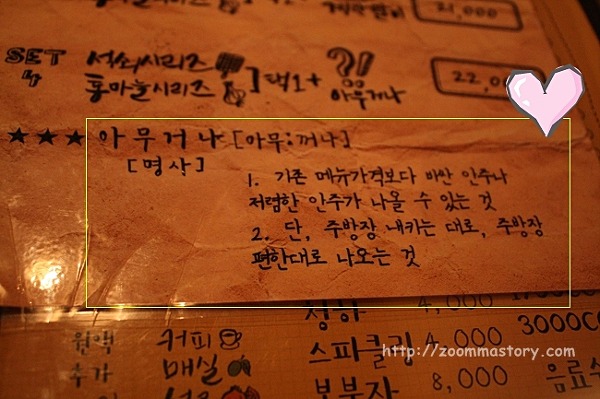 21,000
SET 석쇠시리즈
4 통마늘시리즈 ] 택1 + ?! 아무거나
★★★ 아무거나 [아무:꺼나]
[명사]
1. 기존 메뉴가격보다 비싼 안주나
저렴한 안주가 나올 수 있는 것
2. 단, 주방장 내키는 대로, 주방장
편한대로 나오는 것
청하 4,000
원액 커피 스파클링 4,000 3000CC
추가 매실 복분자 8,000 음료수
http://zoommastory.com